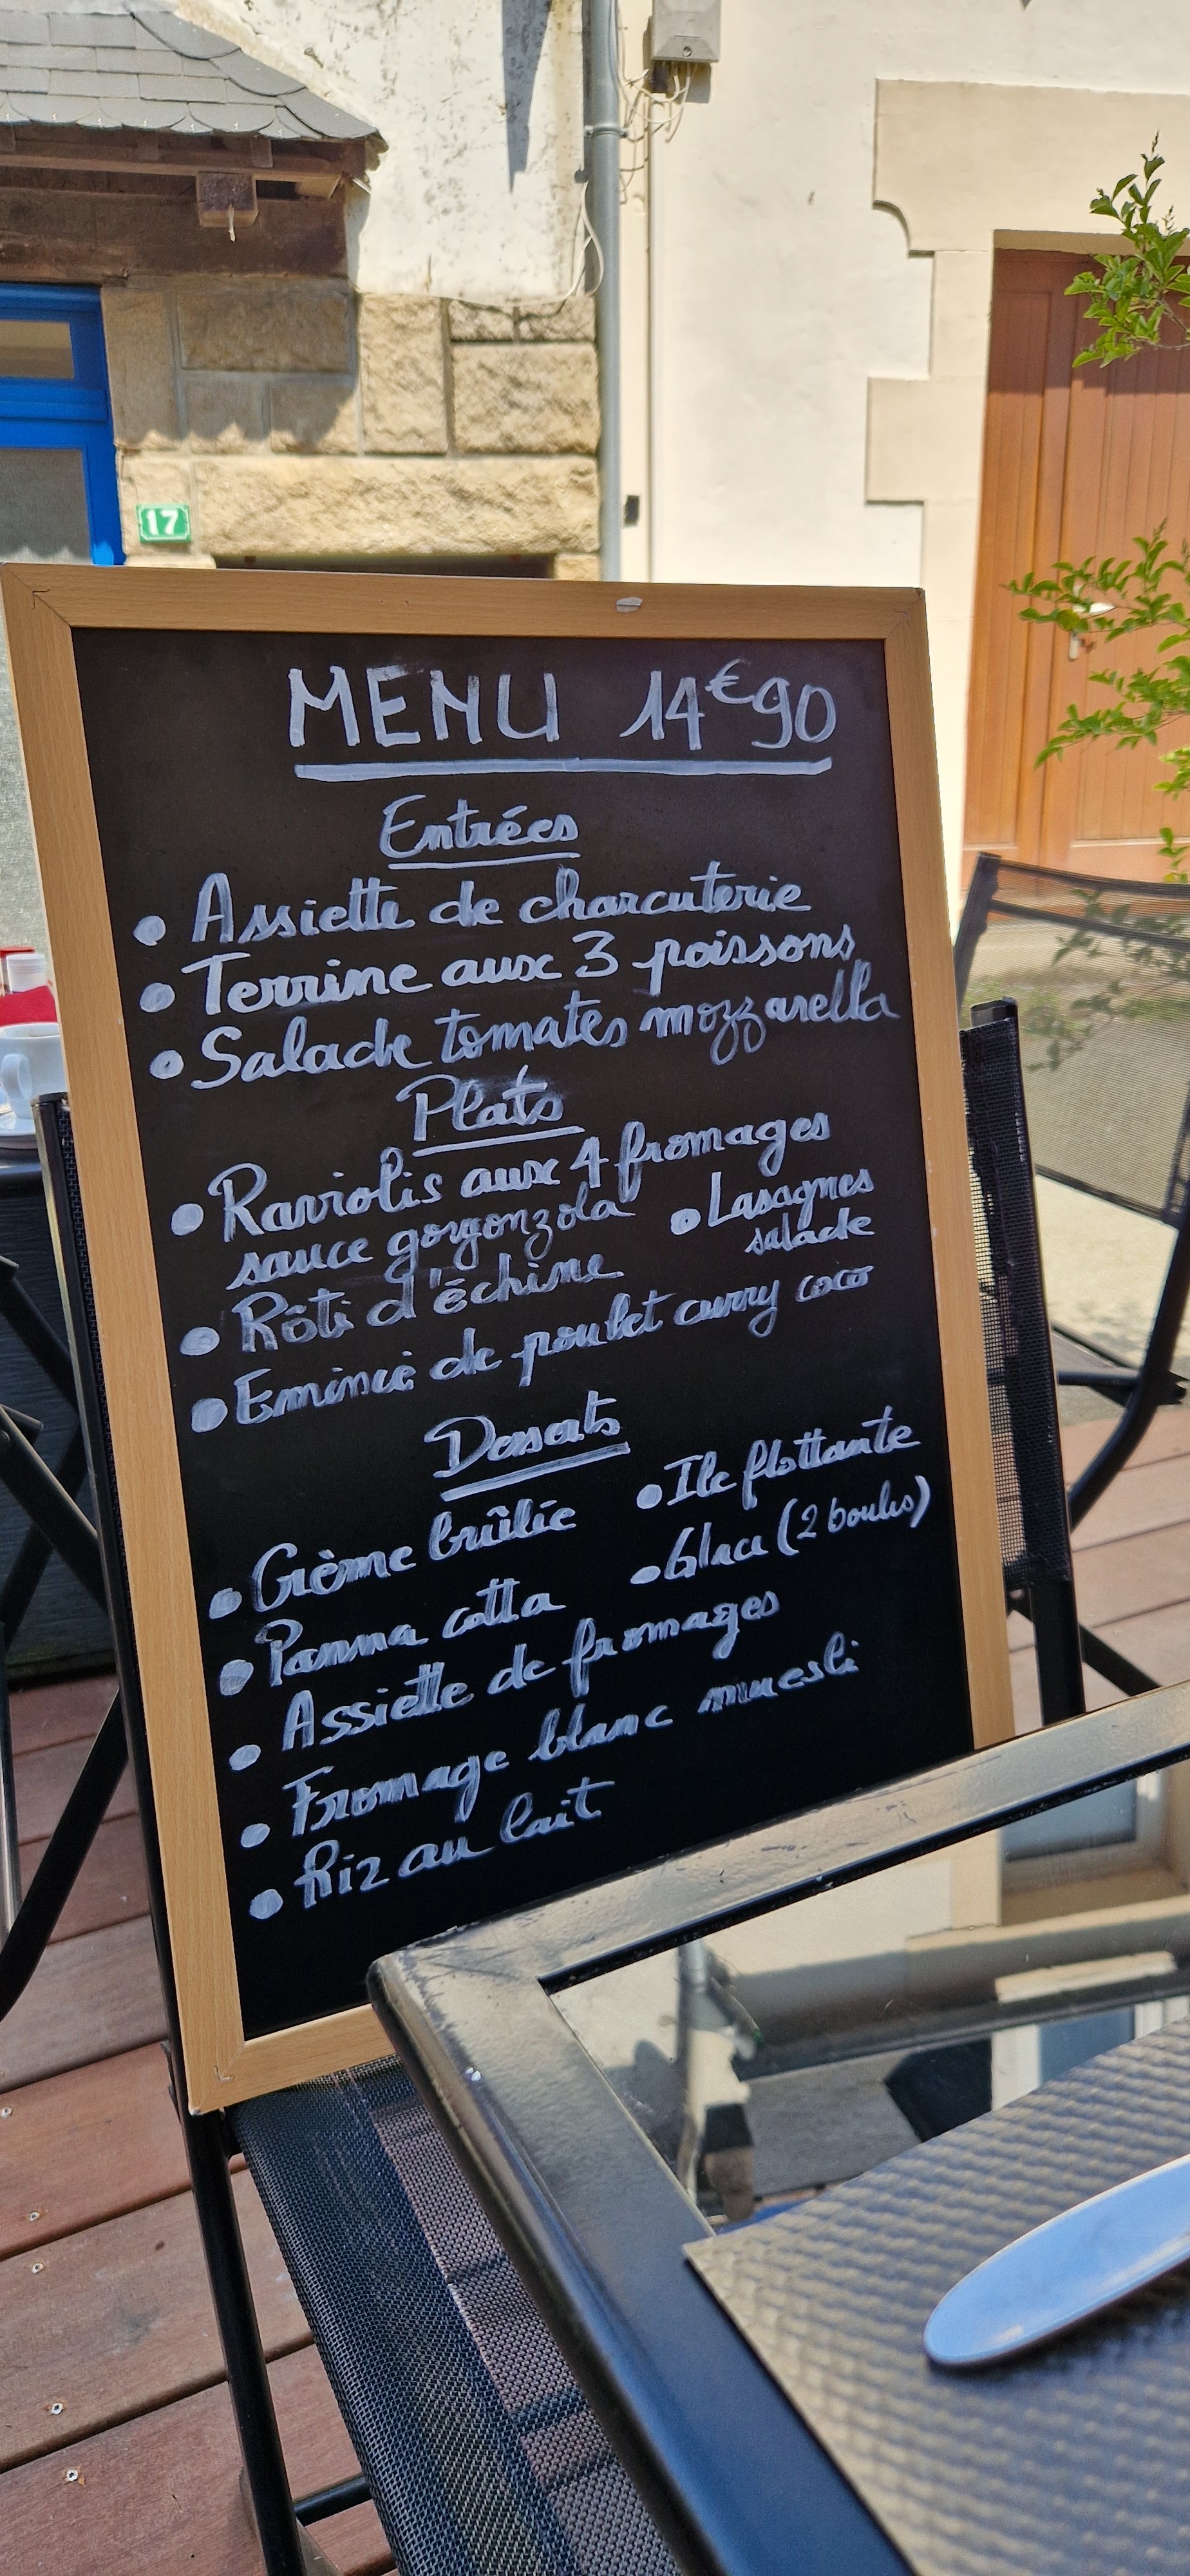 17
MENU 14€90
Entrées
• Assiette de charcuterie
• Terrine aux 3 poissons
• Salade tomates mozzarella
Plats
• Raviolis aux 4 fromages
sauce gorgonzola
• Lasagnes
salade
• Rôti d'échine
• Emincé de poulet curry coco
Desserts
• Crème brûlée
• Ile flottante
• Panna cotta
• Glace (2 boules)
• Assiette de fromages
• Fromage blanc muesli
• Riz au lait